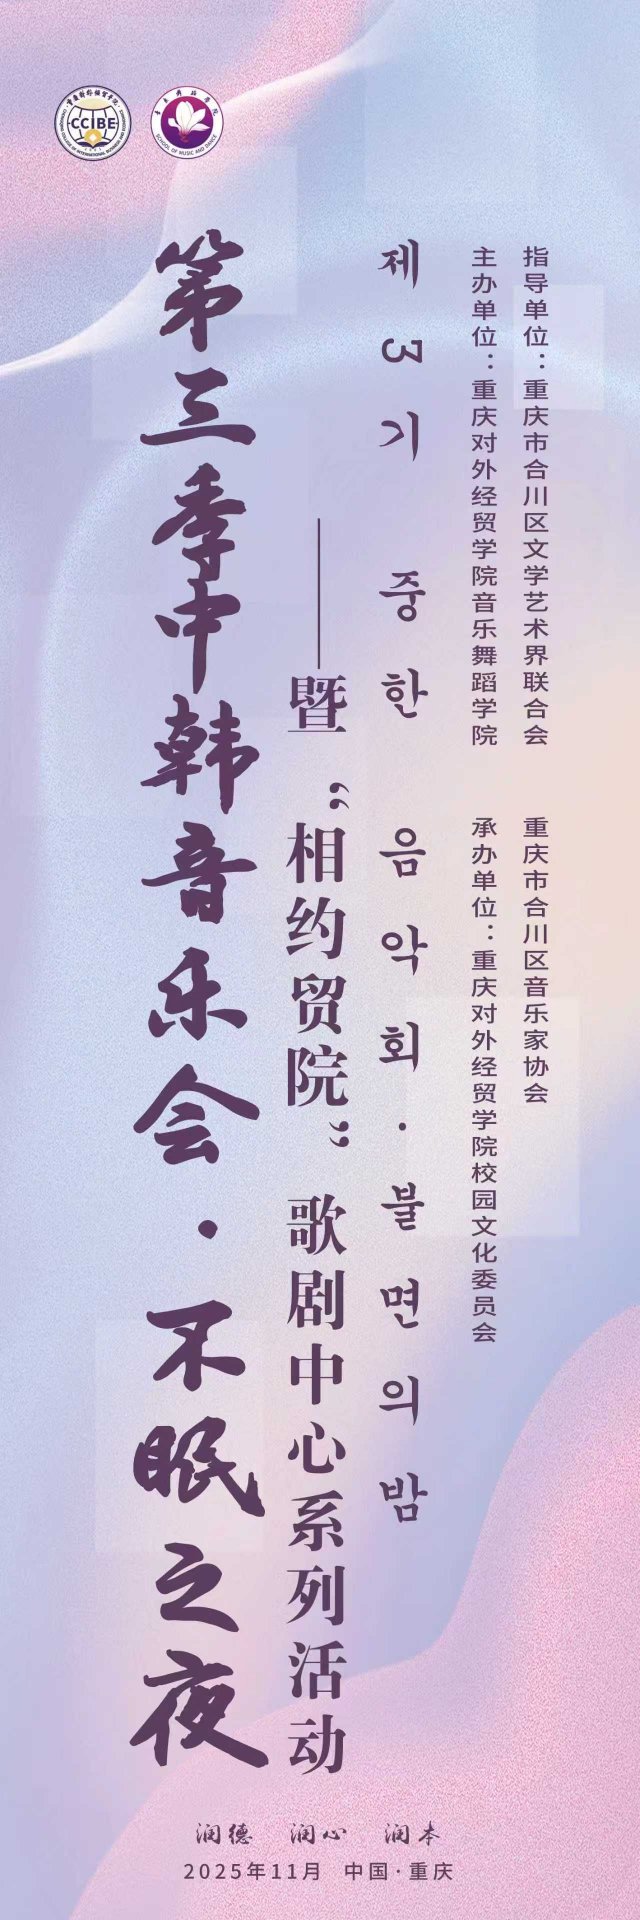 CCIBE
SCHOOL OF MUSIC AND DANCE
第三季中韩音乐会·不眠之夜
——暨“相约贸院”歌剧中心系列活动
제3기 중한 음악회·불면의밤
指导单位：重庆市合川区文学艺术界联合会
重庆市合川区音乐家协会
主办单位：重庆对外经贸学院音乐舞蹈学院
承办单位：重庆对外经贸学院校园文化委员会
润德 润心 润本
2025年11月 中国·重庆